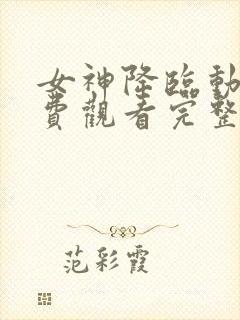 女神降臨動
費觀看完整
范彩霞